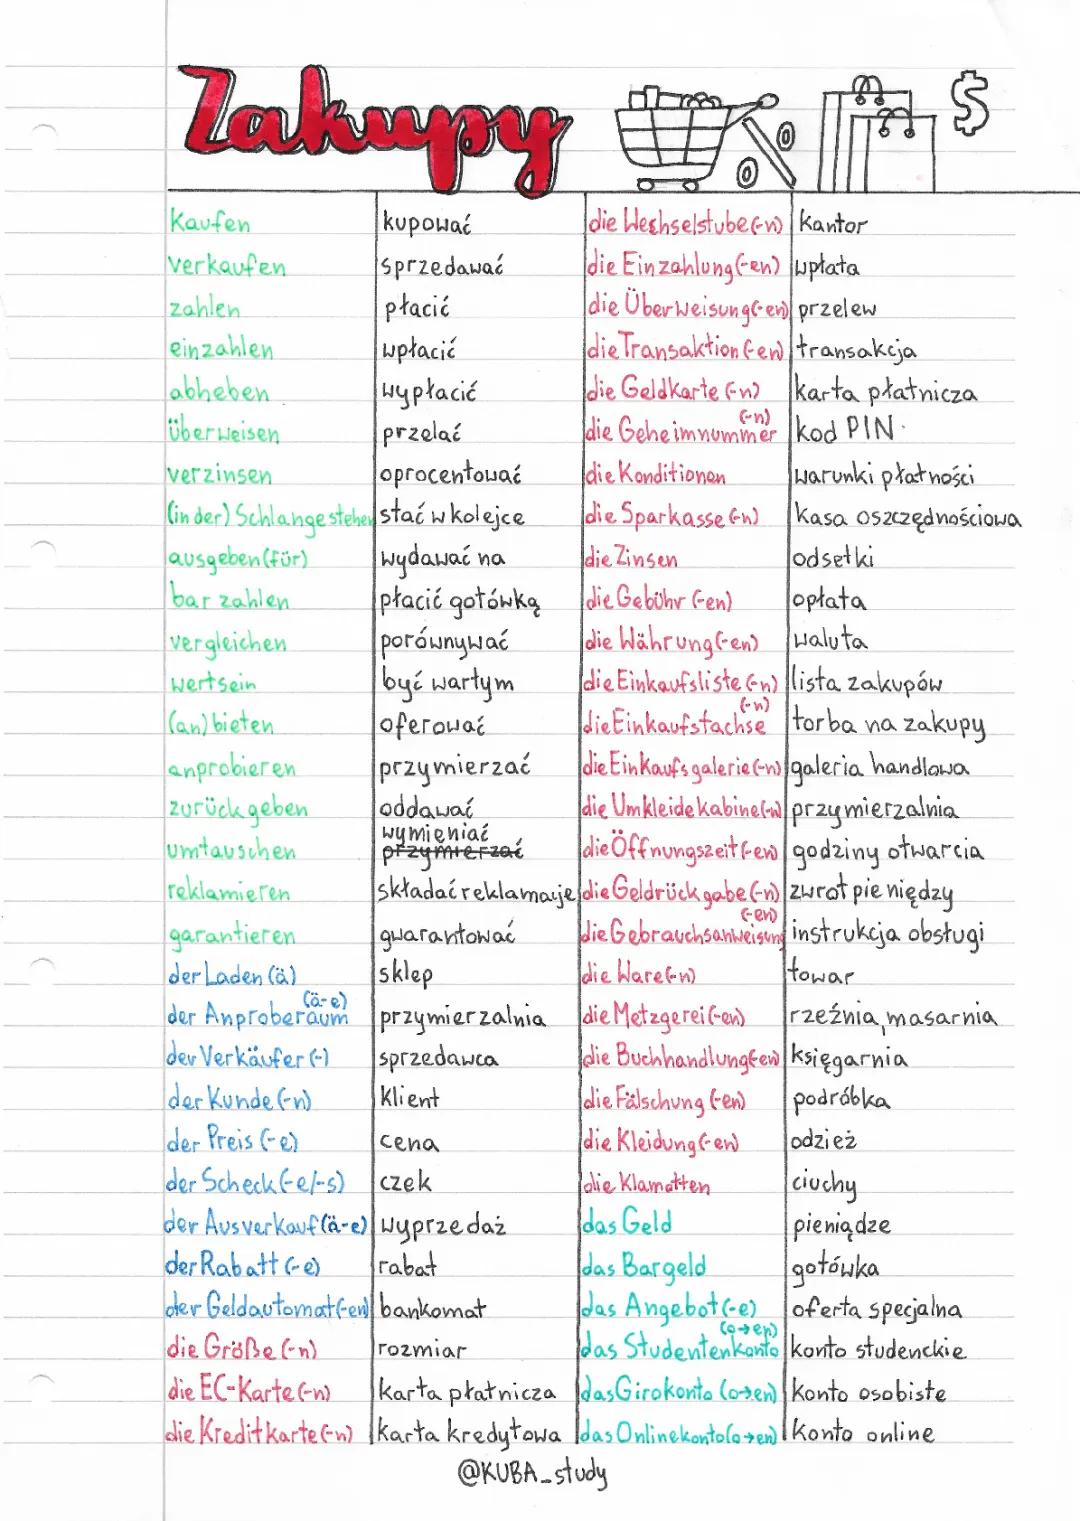 Zakupy % $
Kaufen kupować
verkaufen sprzedawać
zahlen płacić
einzahlen wpłacić
abheben wypłacić
überweisen przelać
verzinsen oprocentować
(in der) Schlange stehen stać w kolejce
ausgeben (für) wydawać na
bar zahlen płacić gotówką
vergleichen porównywać
wertsein być wartym
(an) bieten oferować
anprobieren przymierzać
zurück geben oddawać
umtauschen wymieniać przymierzać
reklamieren składać reklamacje
garantieren gwarantować
der Laden (ä) sklep
der Anproberaum (ä-e) przymierzalnia
der Verkäufer (-) sprzedawca
der Kunde (-n) klient
der Preis (-e) cena
der Scheck (-e/-s) czek
der Ausverkauf (ä-e) wyprzedaż
der Rabatt (-e) rabat
der Geldautomat (-en) bankomat
die Größe (-n) rozmiar
die EC-Karte (-n) karta płatnicza
die Kreditkarte (-n) karta kredytowa
die Wechselstube (-n) kantor
die Einzahlung (-en) wpłata
die Überweisung (-en) przelew
die Transaktion (-en) transakcja
die Geldkarte (-n) karta płatnicza
die Geheimnummer (-n) kod PIN
die Konditionen warunki płatności
die Sparkasse (-n) kasa oszczędnościowa
die Zinsen odsetki
die Gebühr (-en) opłata
die Währung (-en) waluta
die Einkaufsliste (-n) lista zakupów
die Einkaufstachse (-n) torba na zakupy
die Einkaufsgalerie (-n) galeria handlowa
die Umkleidekabine (-n) przymierzalnia
die Öffnungszeit (-en) godziny otwarcia
die Geldrückgabe (-n) zwrot pieniędzy
die Gebrauchsanweisung (-en) instrukcja obsługi
die Ware (-n) towar
die Metzgerei (-en) rzeźnia, masarnia
die Buchhandlung (-en) księgarnia
die Fälschung (-en) podróbka
die Kleidung (-en) odzież
die Klamotten ciuchy
das Geld pieniądze
das Bargeld gotówka
das Angebot (-e) oferta specjalna
das Studentenkonto (o→en) konto studenckie
das Girokonto (o→en) konto osobiste
das Onlinekonto (o→en) konto online
@KUBA_study